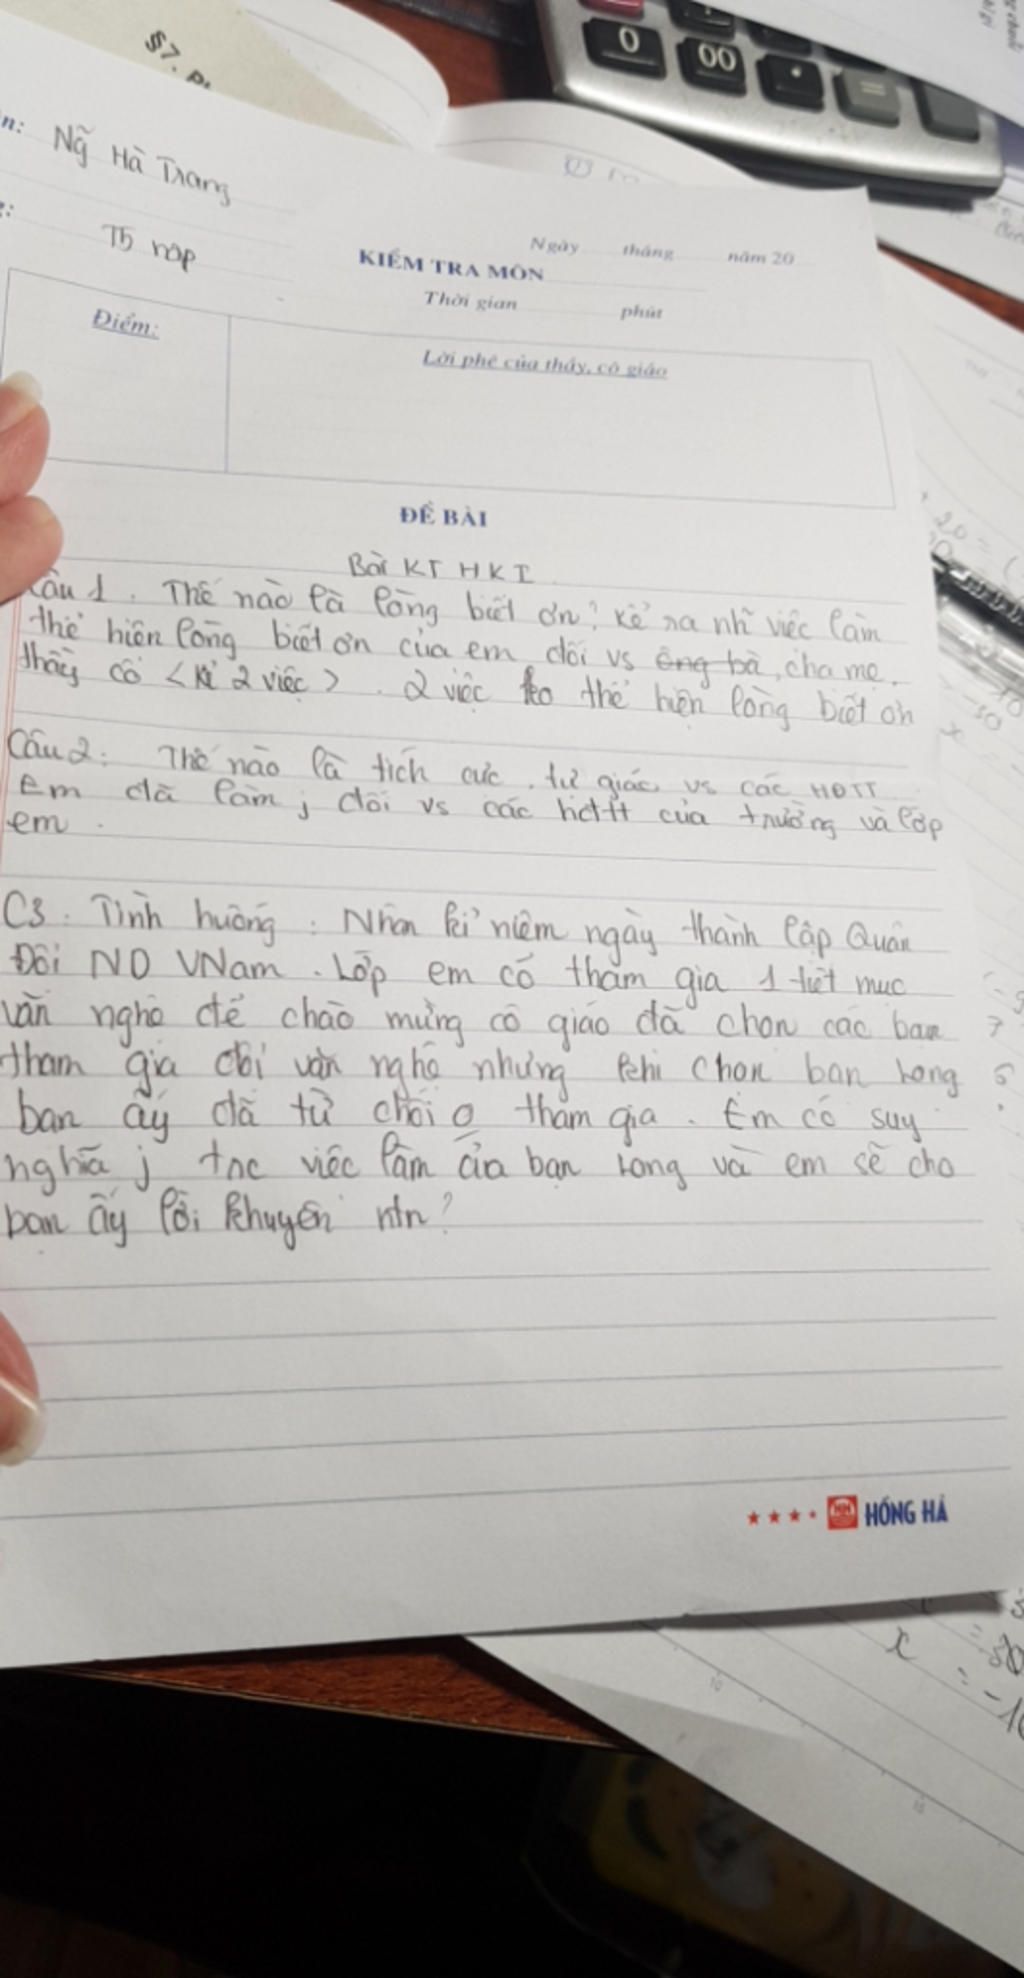 §7. P
n: Ng̃ Hà Trang
T5 nộp
Ngày tháng năm 20
KIỂM TRA MÔN
Thời gian phút
Điểm:
Lời phê của thầy, cô giáo
ĐỀ BÀI
Bài KT HKI
Câu 1. Thế nào là lòng biết ơn? kể ra nh~ việc làm
thể hiện lòng biết ơn của em đối vs ông bà, cha mẹ.
thầy cô <kể 2 việc>. 2 việc ko thể hiện lòng biết ơn
Câu 2: Thế nào là tích cực. tự giác vs các HĐTT
Em đã làm j đối vs các hđtt của trường và lớp
em.
C3. Tình huống: Nhân kỉ niệm ngày thành lập Quân
Đội ND VNam. Lớp em có tham gia 1 tiết mục
văn nghệ để chào mừng cô giáo đã chọn các bạn
tham gia đội văn nghệ nhưng khi chọn bạn Long
bạn ấy đã từ chối o tham gia. Em có suy
nghĩa j trc việc làm của bạn Long và em sẽ cho
bạn ấy lời khuyên ntn?
HỒNG HÀ
0
00
=
x